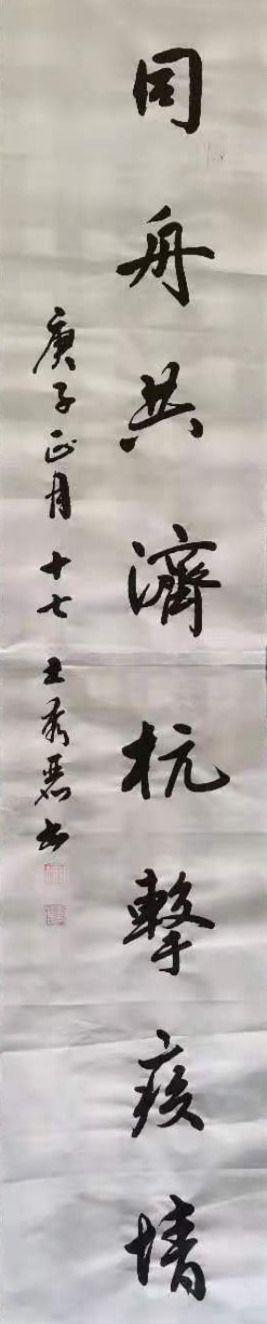 同舟共濟抗擊疫情
庚子正月十七王秀书